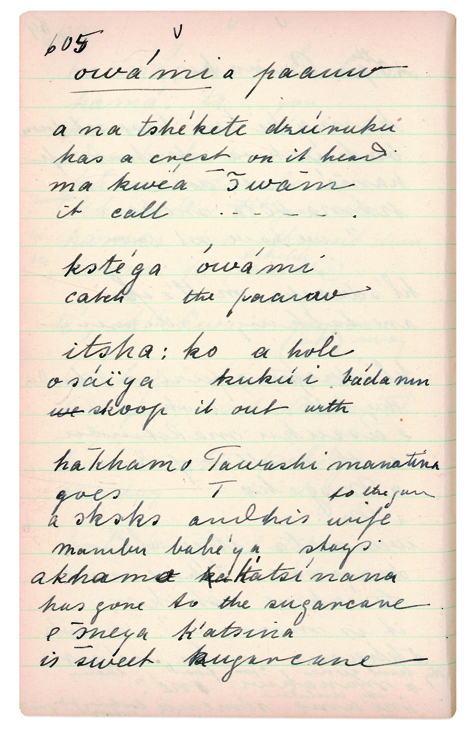 605
owámi a paauw
a na tshékete dzúruku
has a crest on it head
ma kwéa Ĩwām
it call - - - - .
kstéga ówámi
catch the paauw
itsha: ko a hole
osáïya kukúi bádanin
skoop it out with
hākhamo Tawashi manatina
goes T. to the
a sksks and his wife
mambu bahéya stays.
akhamo Katsínana
has gone to the sugarcane
e mēya Katsina
is sweet sugarcane